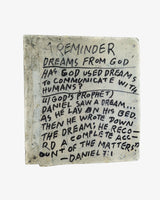 A REMINDER
DREAMS FROM GOD
HAS GOD USED DREAMS
TO COMMUNICATE WITH
HUMANS?
(GOD'S PROPHET)
DANIEL SAW A DREAM...
AS HE LAY ON HIS BED.
THEN HE WROTE DOWN
THE DREAM; HE RECO-
RD A COMPLETE ACC-
OUNT OF THE MATTER,
—DANIEL 7:1